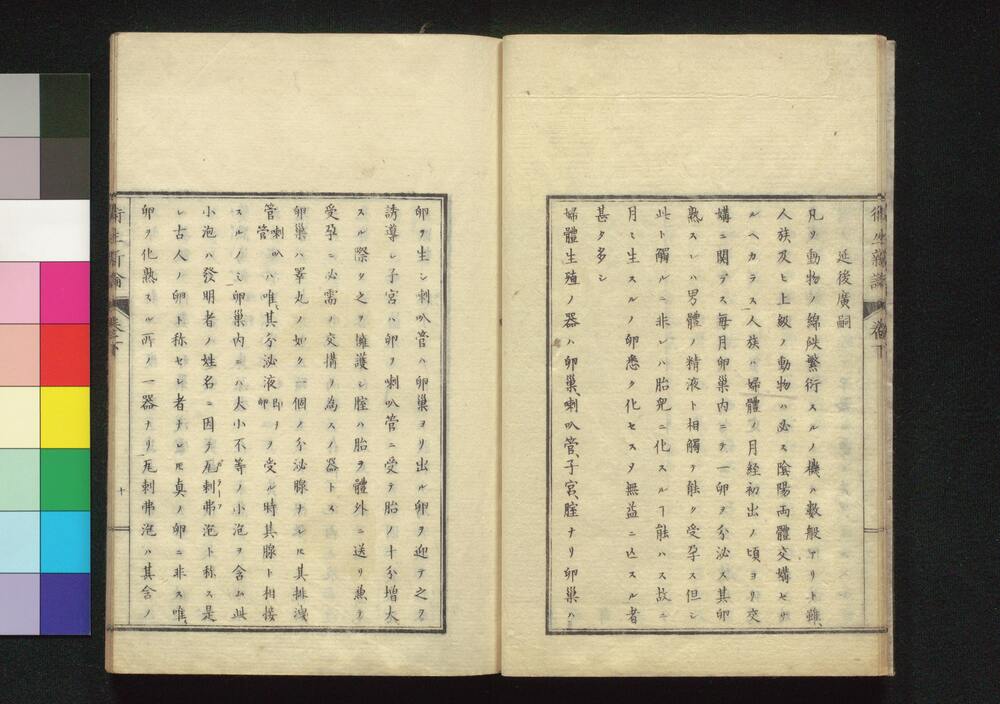 延後廣嗣
凡ソ動物ノ綿紩繁衍スルノ機ハ数般アリト雖、
人族及ヒ上級ノ動物ハ必ス陰陽両體交媾セサ
ルヘカラス人族ハ婦體ノ月経初出ノ頃ヨリ交
媾ニ関テス毎月卵巣内ニテ一卵ヲ分泌ス其卵
熟スレハ男體ノ精液ト相觸テ能ク受孕ス但シ
此ト觸ルニ非レハ胎兒ニ化スルヿ能ハス故ニ
月ミ生スルノ卵悉ク化セスタ無益ニ亾スル者
甚タ多シ
婦體生殖ノ器ハ卵巣、喇叭管、子宮、腟ナリ卵巣ハ
卵ヲ生シ刺叭管ハ卵巣ヨリ出ル卵ヲ迎テ之ヲ
誘導シ子宮ハ卵ヲ喇叭管ニ受テ胎ノ十分増大
スル際タ之ヲ擁護シ腟ハ胎ヲ體外ニ送リ兼テ
受孕ニ必需ノ交媾ノ為スノ器トス
卵巣ハ睪丸ノ如ク一個ノ分泌腺ナレ𪜈其排泄
管喇叭管ハ唯、其分泌液即卵ヲノヲ受ル時其腺ト相接
スルノミ卵巣内ニハ大小不等ノ小泡ヲ含ム此
小泡ハ發明者ノ姓名ニ因テ厄刺弗泡ト称ス是
レ古人ノ卵ト称セシ者ナレ𪜈真ノ卵ニ非ス唯、
卵ヲ化熟スル所ノ一器ナリ厄刺弗泡ハ其含ノ
衛生新論
巻之下
十